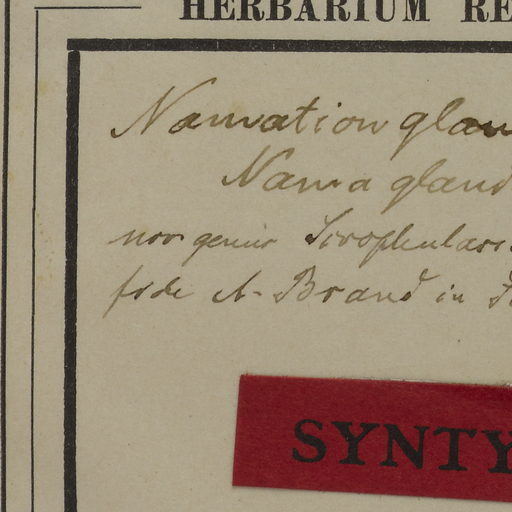 HERBARIUM RE
Namation glan
Nama gland
nov. genus Scrophulari
fide A. Brand in
SYNTY